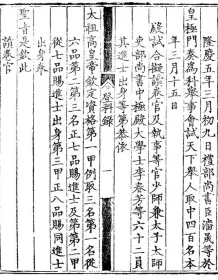 隆慶五年三月初九日禮部尚書臣潘晟等於
皇極門奏為科舉事會試天下舉人取中四百名本
年三月十五日
殿試合擬讀卷官及執事等官少師兼太子太師
吏部尚書中極殿大學士李春芳等六十二員
其進士出身等第恭依
太祖高皇帝欽定資格第一甲例取三名第一名從
六品第二第三名正七品賜進士及第第二甲
從七品賜進士出身第三甲正八品賜同進士
出身奉
聖旨是欽此
讀卷官